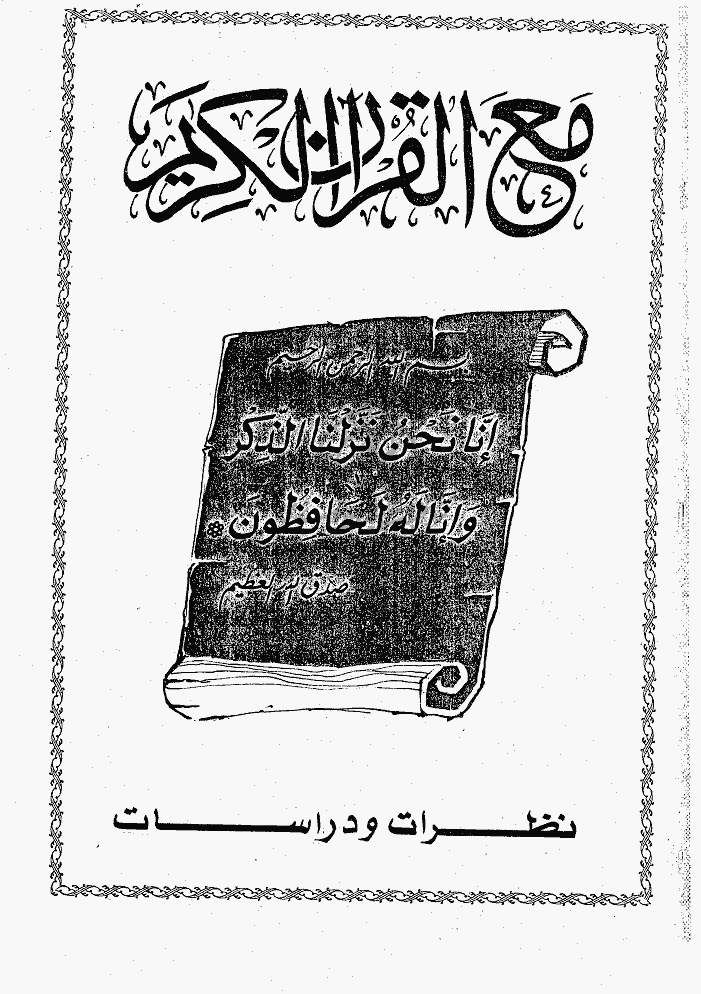 مع القرآن الكريم
بسم الله الرحمن الرحيم
إِنَّا نَحْنُ نَزَّلْنَا الذِّكْرَ
وَإِنَّا لَهُ لَحَافِظُونَ
صدق الله العظيم
نظرات ودراسات